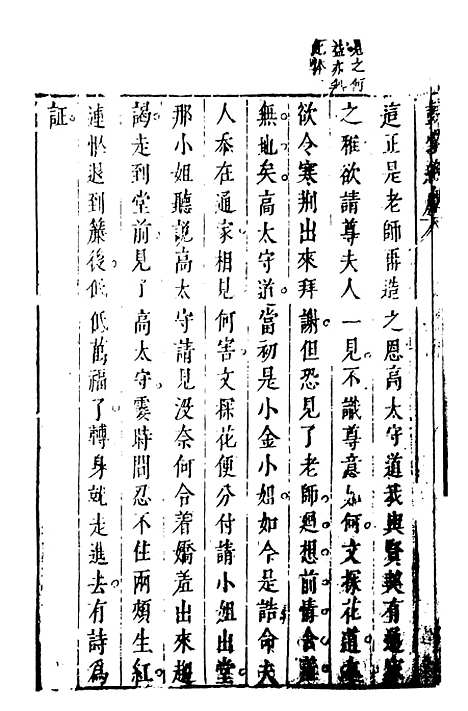 見之何
益亦
這正是老師再造之恩高太守道我與賢契有通家
之雅欲請尊夫人一見不識尊意如何文探花道
欲令寒荆出來拜謝但恐見了老師廻想前情舍
無地矣高太守道當初是小金小姐如今是誥命夫
人忝在通家相見何害文探花便分付請小姐出堂
那小姐聽說高太守請見没奈何含着嬌羞出來趨
謁走到堂前見了高太守霎時間忍不住兩頰生紅
連忙退到簾後低低萬福了轉身就走進去有詩爲
証